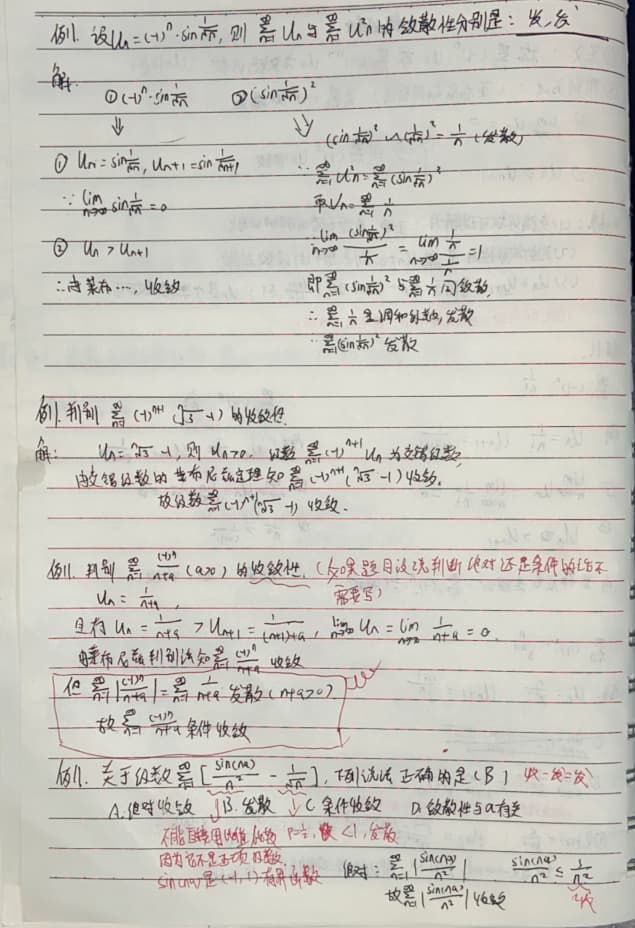 例1. 设Uₙ=(-1)ⁿ·sin 1/√n, 则 ∑(n=1→∞) Uₙ 与 ∑(n=1→∞) U²ₙ 的敛散性分别是: 
解:
①(-1)ⁿ·sin 1/√n ②(sin 1/√n)²
⇓ ⇓ (sin 1/√n)² ∽ (1/√n)² = 1/n (发散)
① Uₙ=sin 1/√n, Uₙ₊₁=sin 1/√(n+1) ∴ ∑(n=1→∞) U²ₙ=∑(n=1→∞)(sin 1/√n)²
∵ lim(n→∞) sin 1/√n=0 取Vₙ=∑(n=1→∞) 1/n
② Uₙ>Uₙ₊₁ ∴ lim(n→∞) (sin 1/√n)²/(1/n) = lim(n→∞) (1/n)/(1/n)=1
∴由莱布…, 收敛 即∑(n=1→∞)(sin 1/√n)²与∑(n=1→∞) 1/n同敛散,
∴ ∑(n=1→∞) 1/n 是调和级数,发散
∴ ∑(n=1→∞)(sin 1/√n)² 发散
例1. 判别 ∑(n=1→∞) (-1)ⁿ⁺¹ (ⁿ√3 -1) 的收敛性.
解: Uₙ=ⁿ√3 -1, 则 Uₙ>0. 级数 ∑(n=1→∞)(-1)ⁿ⁺¹ Uₙ 为交错级数,
由交错级数的莱布尼兹定理知 ∑(n=1→∞)(-1)ⁿ⁺¹(ⁿ√3 -1)收敛.
故级数∑(n=1→∞)(-1)ⁿ⁺¹(ⁿ√3 -1) 收敛.
例1. 判别 ∑(n=1→∞) (-1)ⁿ/(n+a) (a>0) 的收敛性. (如果题目没说判断绝对还是条件的话不
需要写)
Uₙ=1/(n+a),
且有 Uₙ=1/(n+a) > Uₙ₊₁=1/((n+1)+a), lim(n→∞) Uₙ=lim(n→∞) 1/(n+a)=0.
由莱布尼兹判别法知∑(n=1→∞) (-1)ⁿ/(n+a) 收敛
但 ∑(n=1→∞)|(-1)ⁿ/(n+a)|=∑(n=1→∞) 1/(n+a) 发散(n+a>0)
故∑(n=1→∞) (-1)ⁿ/(n+a) 条件收敛
例1. 关于级数∑(n=1→∞)[sin(na)/n² - 1/√n], 下列说法正确的是(B) 收-发=发
A.绝对收敛 B.发散 C条件收敛 D.敛散性与a有关
不能直接用比值 P=1/2, <1,发散
因为它不是正项级数,
sin(na)是(-1,1)有界函数 ∑(n=1→∞)|sin(na)/n²| sin(na)/n² ≤ 1/n²
故∑(n=1→∞)|sin(na)/n²|收敛 收